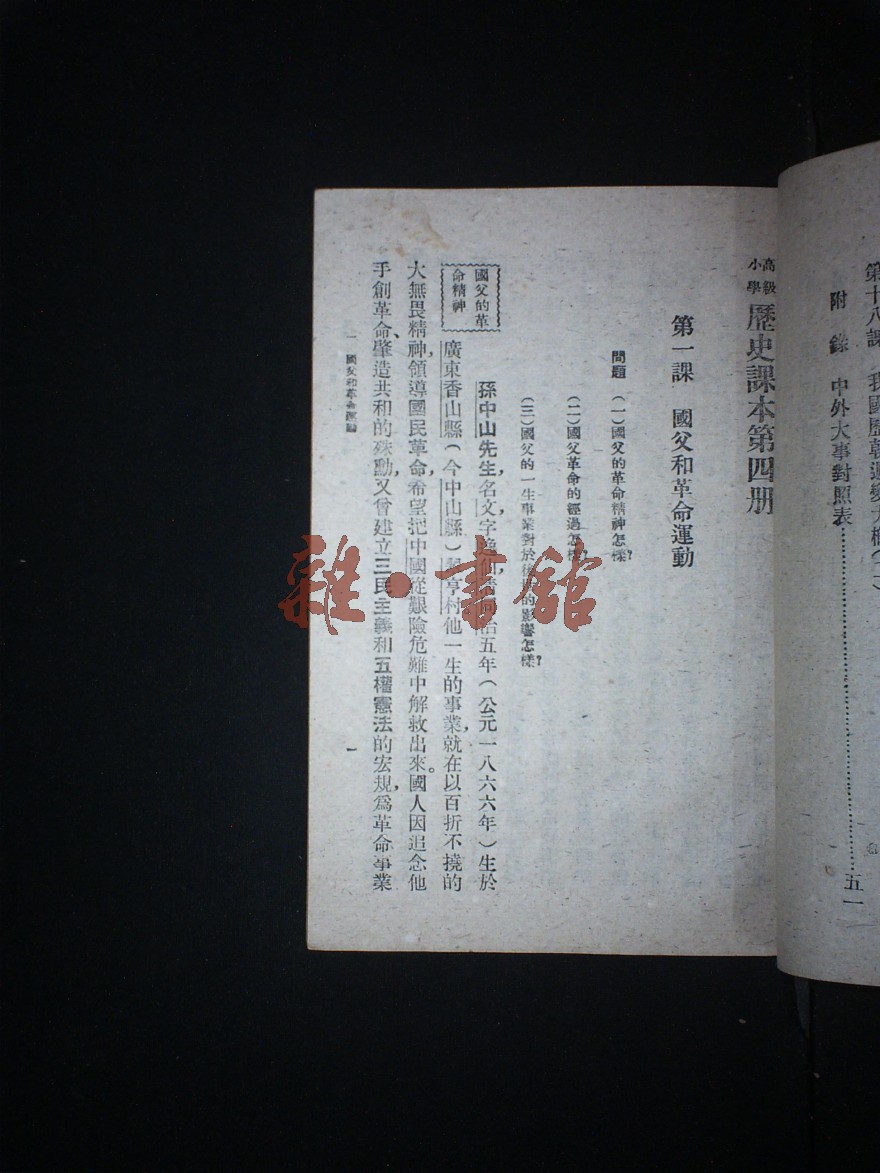 第十八課
附錄 中外大事對照表……五一
高級小學 歷史課本第四册
第一課 國父和革命運動
問題 (一)國父的革命精神怎樣?
(二)國父革命的經過怎樣?
(三)國父的一生事業對於後的影響怎樣?
國父的革命精神
孫中山先生,名文,字逸仙,同治五年(公元一八六六年)生於
廣東香山縣(今中山縣)翠亨村他一生的事業,就在以百折不撓的
大無畏精神,領導國民革命,希望把中國從艱險危難中解救出來。國人因追念他
手創革命、肇造共和的殊勳,又曾建立三民主義和五權憲法的宏規,爲革命事業
一 國父和革命運動
一
雜·書館